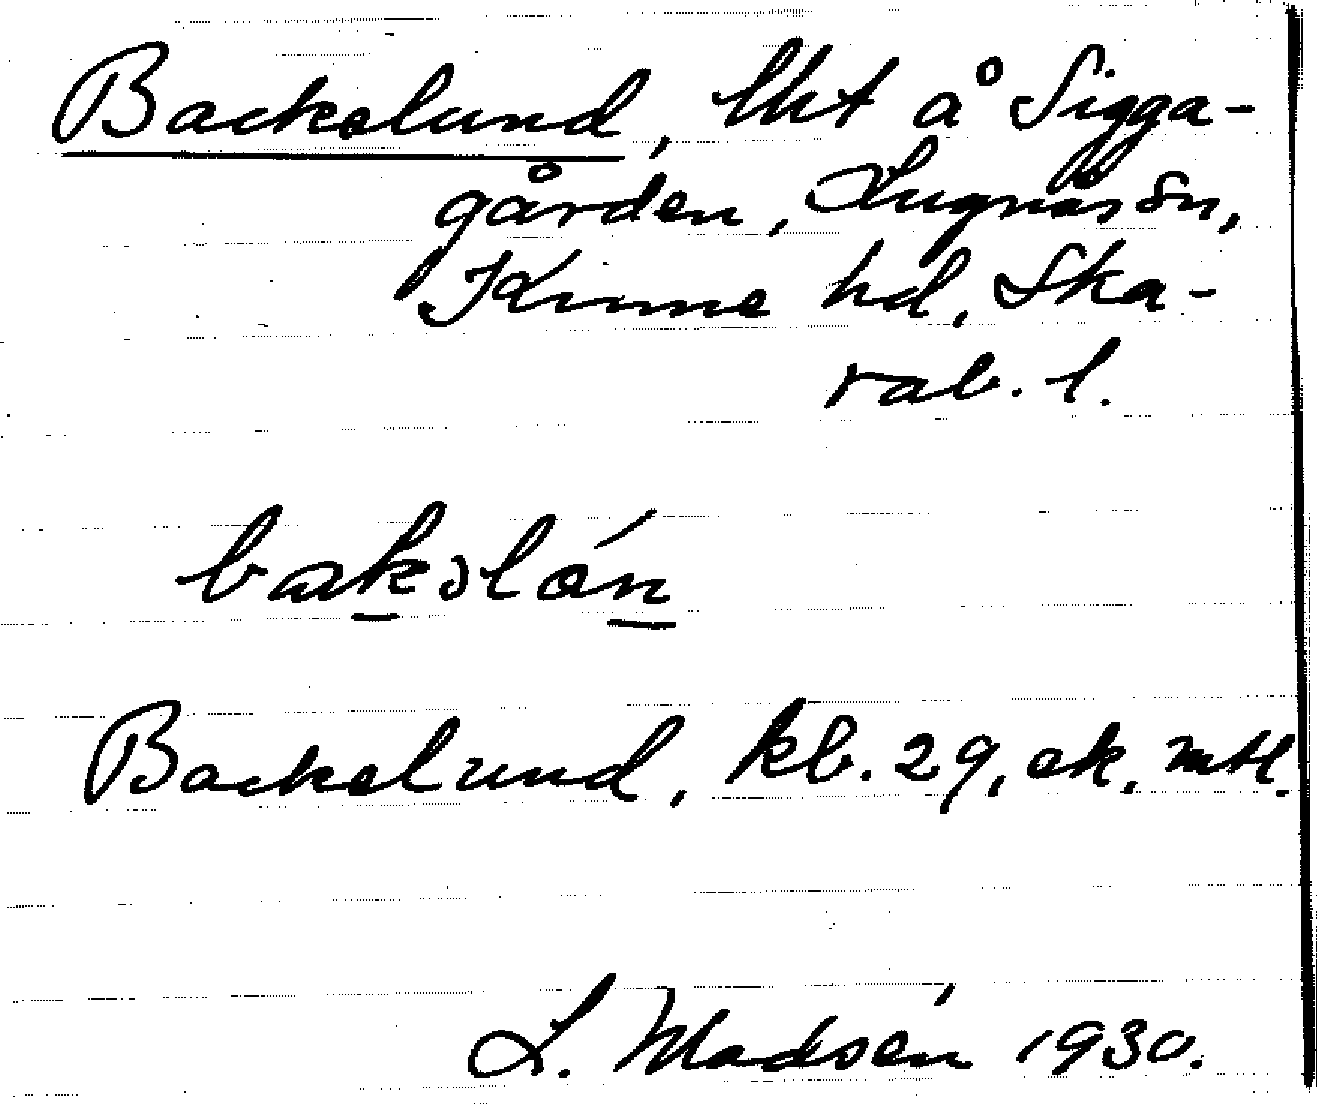 Backelund, lht å Sigga-
gården, Lugnås sn,
Kinne hd, Ska-
rab. l.
bakəlón
Backelund, kb. 29, ek. mtl.
L. Madsén 1930.